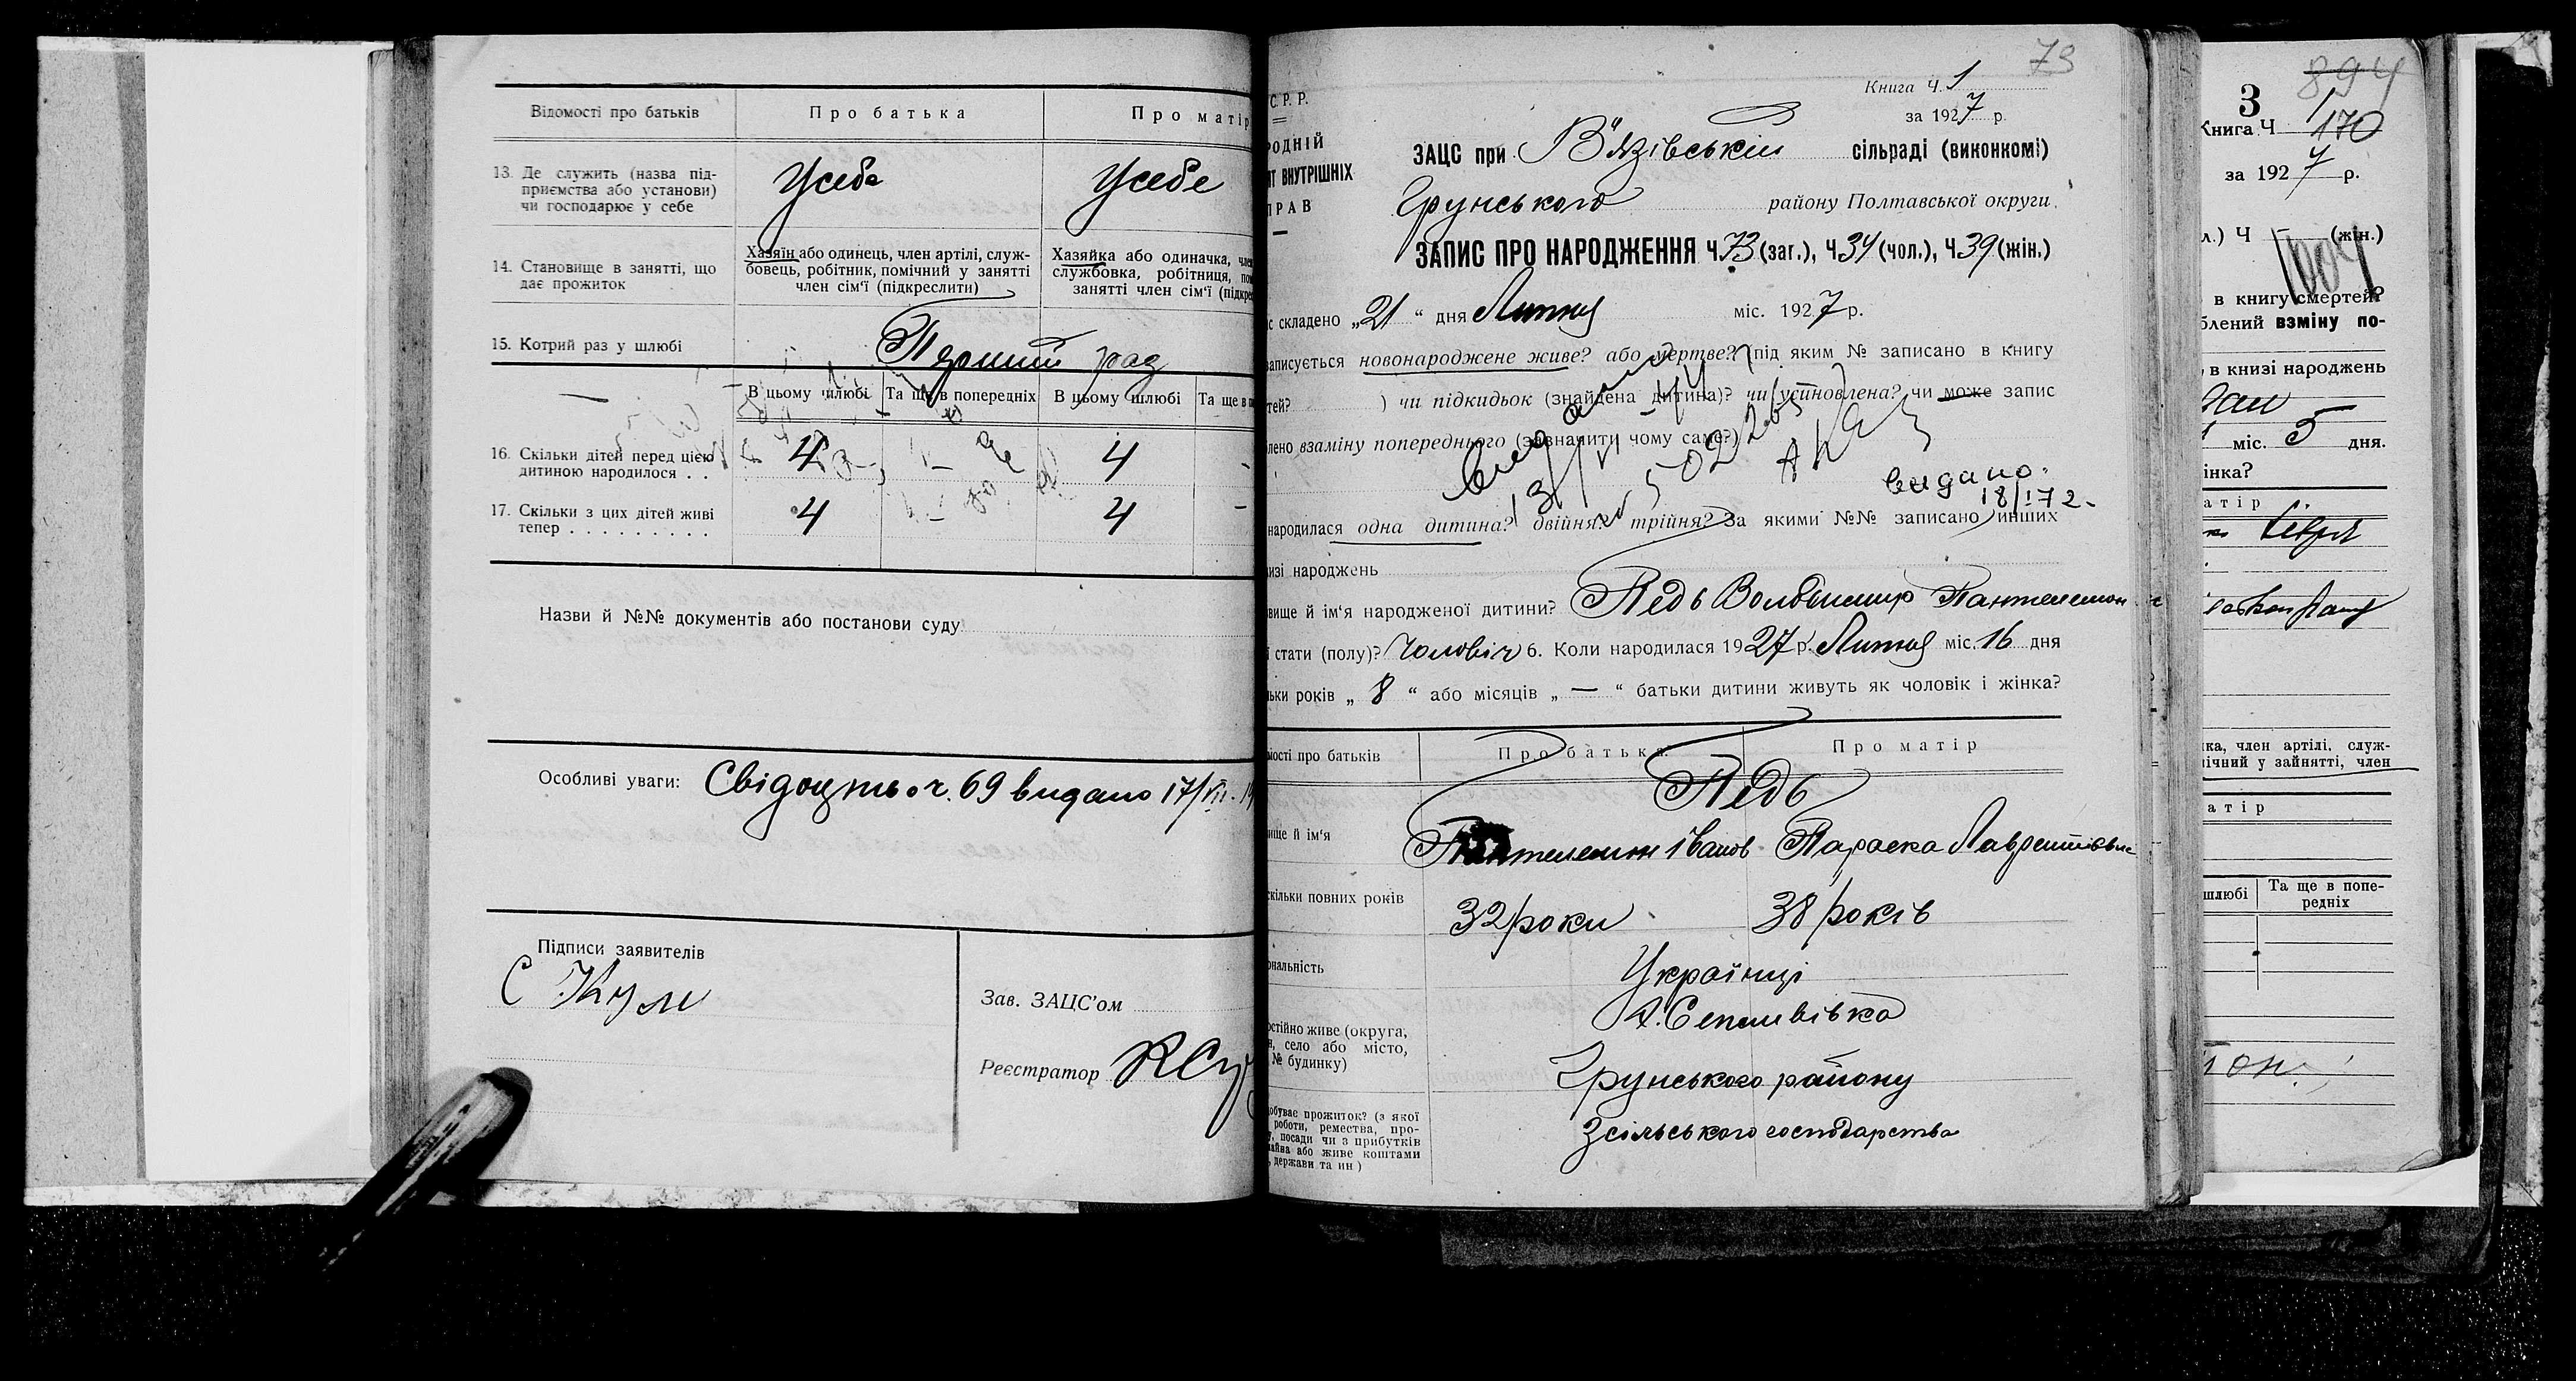 Відомості про батьків
Про батька
Про матір
13. Де служить (назва під-
приємства або установи)
чи господарює у себе
Усебе
Усебе
14. Становище в занятті, що
дає прожиток
Хазяїн або одинець, член артілі, служ-
бовець, робітник, помічний у занятті
член сім'ї (підкреслити)
Хазяйка або одиначка, член
службовка, робітниця, пом
занятті член сім'ї (підкре
15. Котрий раз у шлюбі
Перший раз
В цьому шлюбі
Та ще в попередніх
В цьому шлюбі
Та ще в п
16. Скільки дітей перед цією
дитиною народилося . .
4
4
-
17. Скільки з цих дітей живі
тепер . . . . . . . . .
4
4
-
Назви й №№ документів або постанови суду
Особливі уваги: Свідоцтво ч. 69 видано 17/VII. 19
Підписи заявителів
Зав. ЗАЦС'ом
Реєстратор
73
Книга Ч. 1
за 1927 р.
С. Р. Р.
РОДНІЙ
Т ВНУТРІШНІХ
ПРАВ
ЗАЦС при В'язівській сільраді (виконкомі)
Грунського району Полтавської округи.
ЗАПИС ПРО НАРОДЖЕННЯ Ч. 73 (заг.), Ч 34 (чол.), Ч 39 (жін.)
с складено „21" дня Липня міс. 1927 р.
записується новонароджене живе? або мертве? (під яким № записано в книгу
тей? ) чи підкидьок (знайдена дитина)? чи установлена? чи може запис
лено взаміну попереднього (зазначити чому саме?)
видано
13/VI
видано
18/I 72-
народилася одна дитина? двійня? трійня? За якими №№ записано инших
изі народжень
вище й ім'я народженої дитини? Педь Володимир Пантелемон
стати (полу)? Чоловіч 6. Коли народилася 1927 р. Липня міс. 16 дня
ьки років „ 8 " або місяців „ — " батьки дитини живуть як чоловік і жінка?
мості про батьків
Про батька
Про матір
Педь
вище й ім'я
Пантелемон Іванов
Параска Лаврентіівна
скільки повних років
32 роки
38 років
ональність
Українці
остійно живе (округа,
н, село або місто,
№ будинку)
Х. Степанівка
Грунського району
обуває прожиток? (з якої
роботи, ремества, про-
, посади чи з прибутків
майна або живе коштами
, держави та ин)
З сільського господарства
894
3
Книга Ч 1
170
за 1927 р.
л.) Ч — (жін.)
в книгу смертей?
блений взміну по-
, в книзі народжень
міс. 5 дня.
інка?
атір
ка, член артілі, служ-
ічний у зайнятті, член
атір
шлюбі
Та ще в попе-
редніх